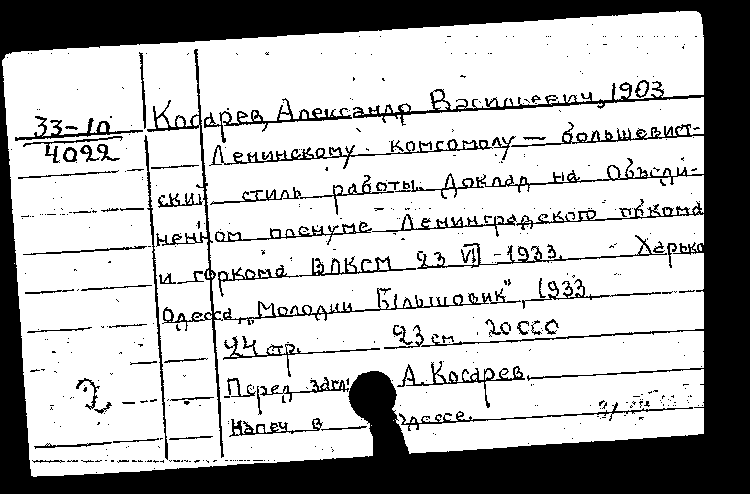 33-10
4022
Косарев, Александр Васильевич, 1903
Ленинскому комсомолу — большевист-
ский стиль работы. Доклад на Объеди-
ненном пленуме Ленинградского обкома
и горкома ВЛКСМ 23 VII - 1933. Харько
Одесса, "Молодий Більшовик", 1933.
24 стр. 23 см. 20000
Перед загл. А. Косарев.
Напеч. в Одессе.
2